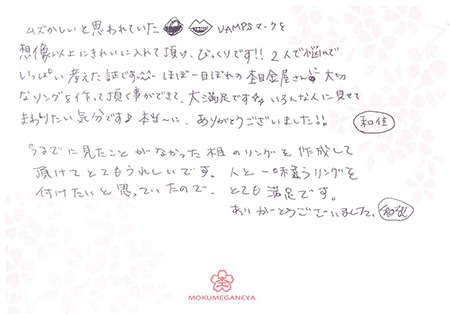 ムズかしいと思われていた VAMPSマークを
想像以上にきれいに入れて頂け、びっくりです!! 2人で悩んで
いっぱい考えた証です。 ほぼ一目ぼれの杢目金屋さんで 大切
なリングを作って頂く事ができて、大満足です いろんな人に見せて
まわりたい気分です♪ 本当〜に、ありがとうございました!!
今までに見たことがなかった 桜のリングを作成して
頂けてとてもうれしいです。人と一味違うリングを
付けたいと思っていたので、とても満足です。
ありがとうございました。
MOKUMEGANEYA